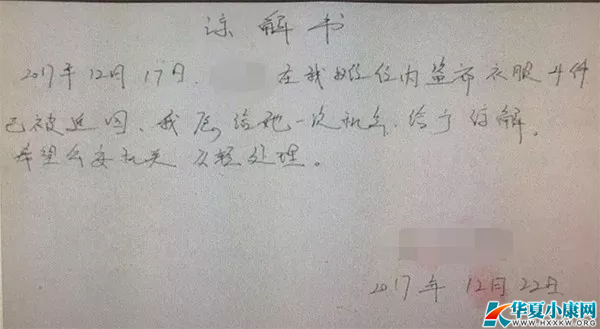 谅解书
2017年12月17日. 在我单位内盗窃衣服4件
已被追回、我愿给她一次机会.给予谅解.
希望公安机关从轻处理。
2017年12月22日
华夏小康网
WWW.HXXKW.ORG